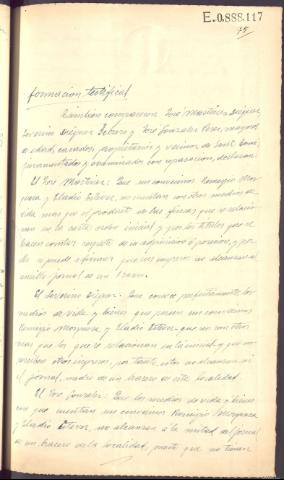 E.0.888.117
75
formación testifical
También comparecen José Martínez
y José González Pérez, mayores
de edad, casados, propietarios y vecinos de
juramentados y examinados con separación, declaran:
El José Martínez: Que sus convecinos Remigio
y Eladio Esteve, no cuentan con otros medios de
vida mas que el producto de las fincas que se relacio-
nan en la carta orden inicial y por los títulos que se
hacen constar respecto de la adquisición o posesión, y por
de a puede afirmar que sus ingresos no alcanzan al
doble jornal de un bracero.
El : Que conoce perfectamente los
medios de vida y bienes que poseen sus convecinos
Remigio y Eladio Esteve que no son otros
mas que los que se relacionan en la
otros ingresos, por tanto, estos no alcanzan ni
el jornal, medio de un bracero de esta localidad.
El José González: Que los medios de vida y bienes
con que cuentan sus convecinos Remigio
y Eladio Esteve, no alcanzan a la mitad del jornal
de un bracero de la localidad, puesto que no tienen